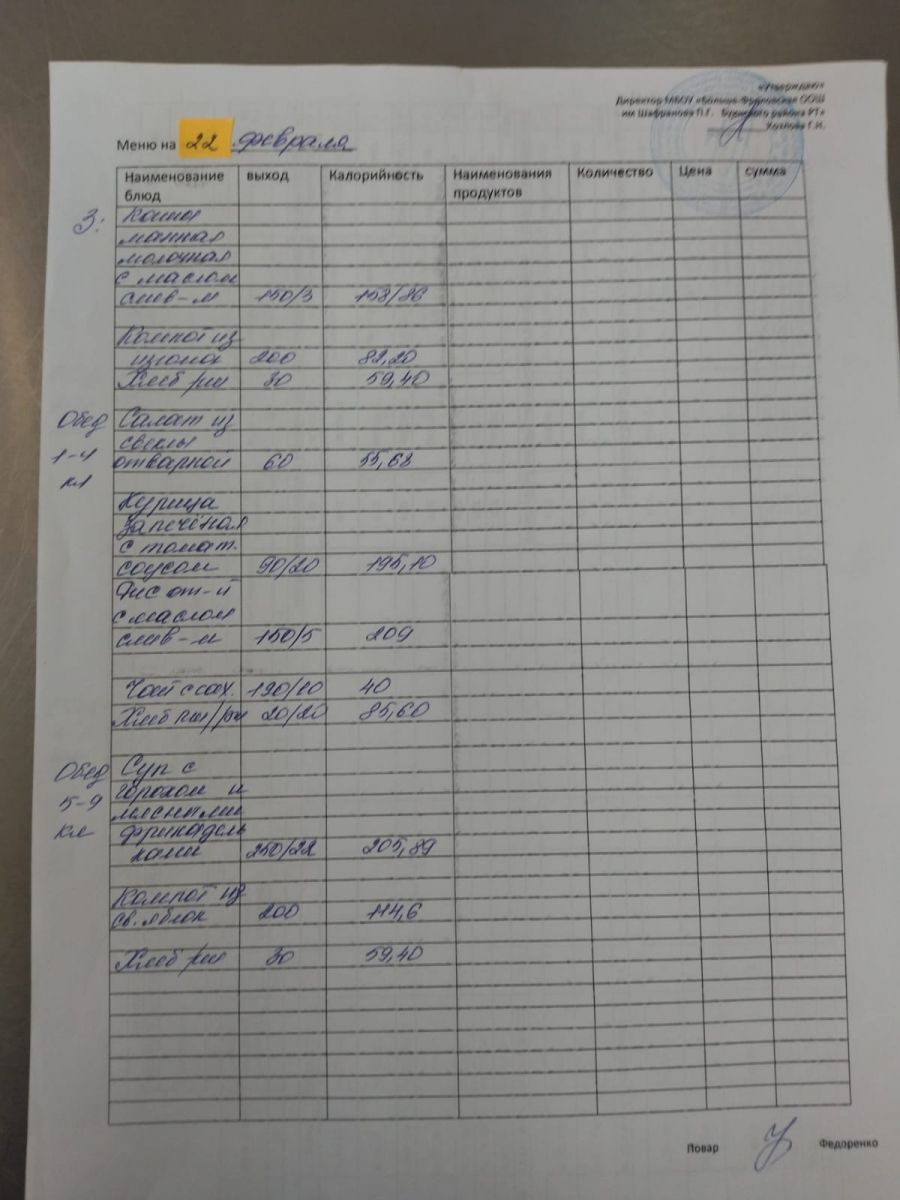 «Утверждаю»
Директор МБОУ «Больше-Фроловская ООШ
им Шафранова П.Г. Буинского района РТ»
Козлова Г.И.
Меню на 22 февраля
Наименование блюд выход Калорийность Наименования продуктов Количество Цена сумма
З: Каша
манная
молочная
с маслом
слив-м 150/3 158/86
Компот из
изюма 200 82,20
Хлеб рж 30 59,40
Обед Салат из
свеклы
1-4 отварной 60 55,68
кл
Курица
запечёная
с томат.
соусом 90/20 195,10
Рис от-й
с маслом
слив-м 150/5 209
Чай с сах. 190/10 40
Хлеб пш/рж 20/20 85,60
Обед Суп с
горохом и
5-9 мясными
кл фрикадель
ками 250/22 205,89
Компот из
св. яблок 200 114,6
Хлеб рж 30 59,40
Повар Федоренко